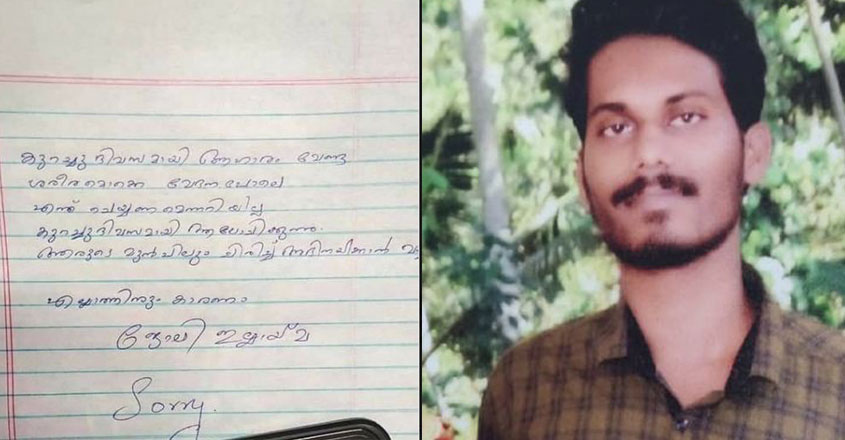 കുറച്ചു ദിവസമായി ആഹാരം വേണ്ട
ശരീരമൊക്കെ വേദനപോലെ
എന്ത് ചെയ്യണമെന്നറിയില്ല
കുറച്ചു ദിവസമായി ആലോചിക്കുന്നു.
ആരുടെ മുൻപിലും ചിരിച്ച് അഭിനയിക്കാൻ
എല്ലാത്തിനും കാരണം
ജോലി ഇല്ലായ്മ
Sorry.